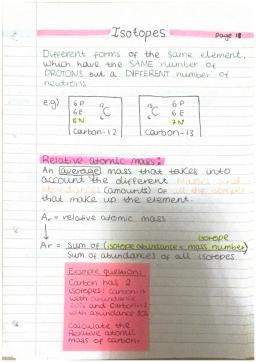 Isotopes
Page 18
Different forms of the same element,
which have the SAME number of
PROTONS but a DIFFERENT number of
neutrons
e.g)
6 P
6 E
6N
C
carbon-12
C
6 P
6 E
7N
carbon-13
Relative atomic mass:
An average mass that takes into
account the different masses and
abundances (amounts) of all the isotopes
that make up the element.
Ar = relative atomic mass
isotope
Ar = sum of (isotope abundance × mass number)
Sum of abundances of all isotopes
Example question:
Carbon has 2
isotopes: carbon
with abundance
and carbon
with abundance
Calculate the
Relative atomic
mass of carbon.